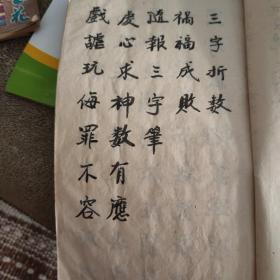 三字折数
禍福成敗
隨報三字筆
虔心求神数有應
戲謔玩侮罪不容